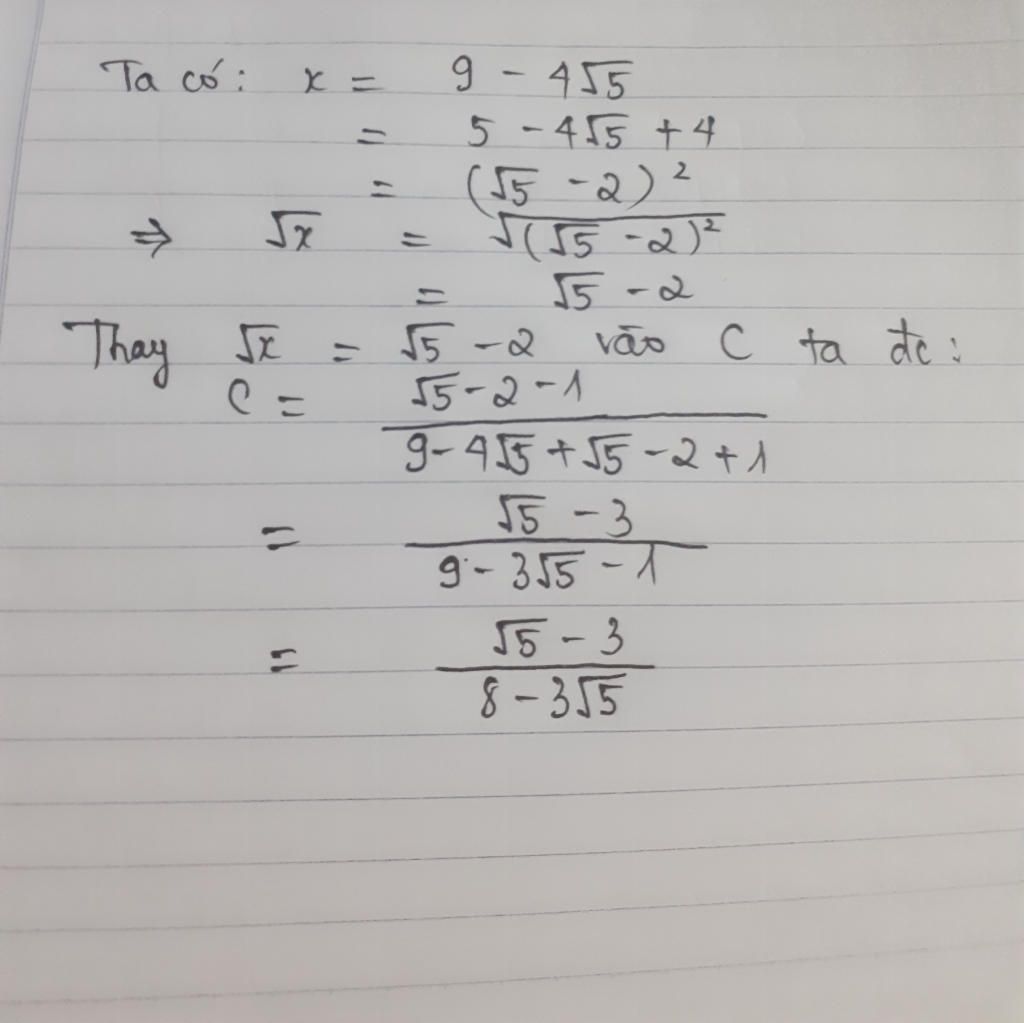 Ta có: x = 9 - 4√5
= 5 - 4√5 + 4
= (√5 - 2)²
⇒ √x = √(√5 - 2)²
= √5 - 2
Thay √x = √5 - 2 vào C ta đc:
C = √5 - 2 - 1
9 - 4√5 + √5 - 2 + 1
= √5 - 3
9 - 3√5 - 1
= √5 - 3
8 - 3√5